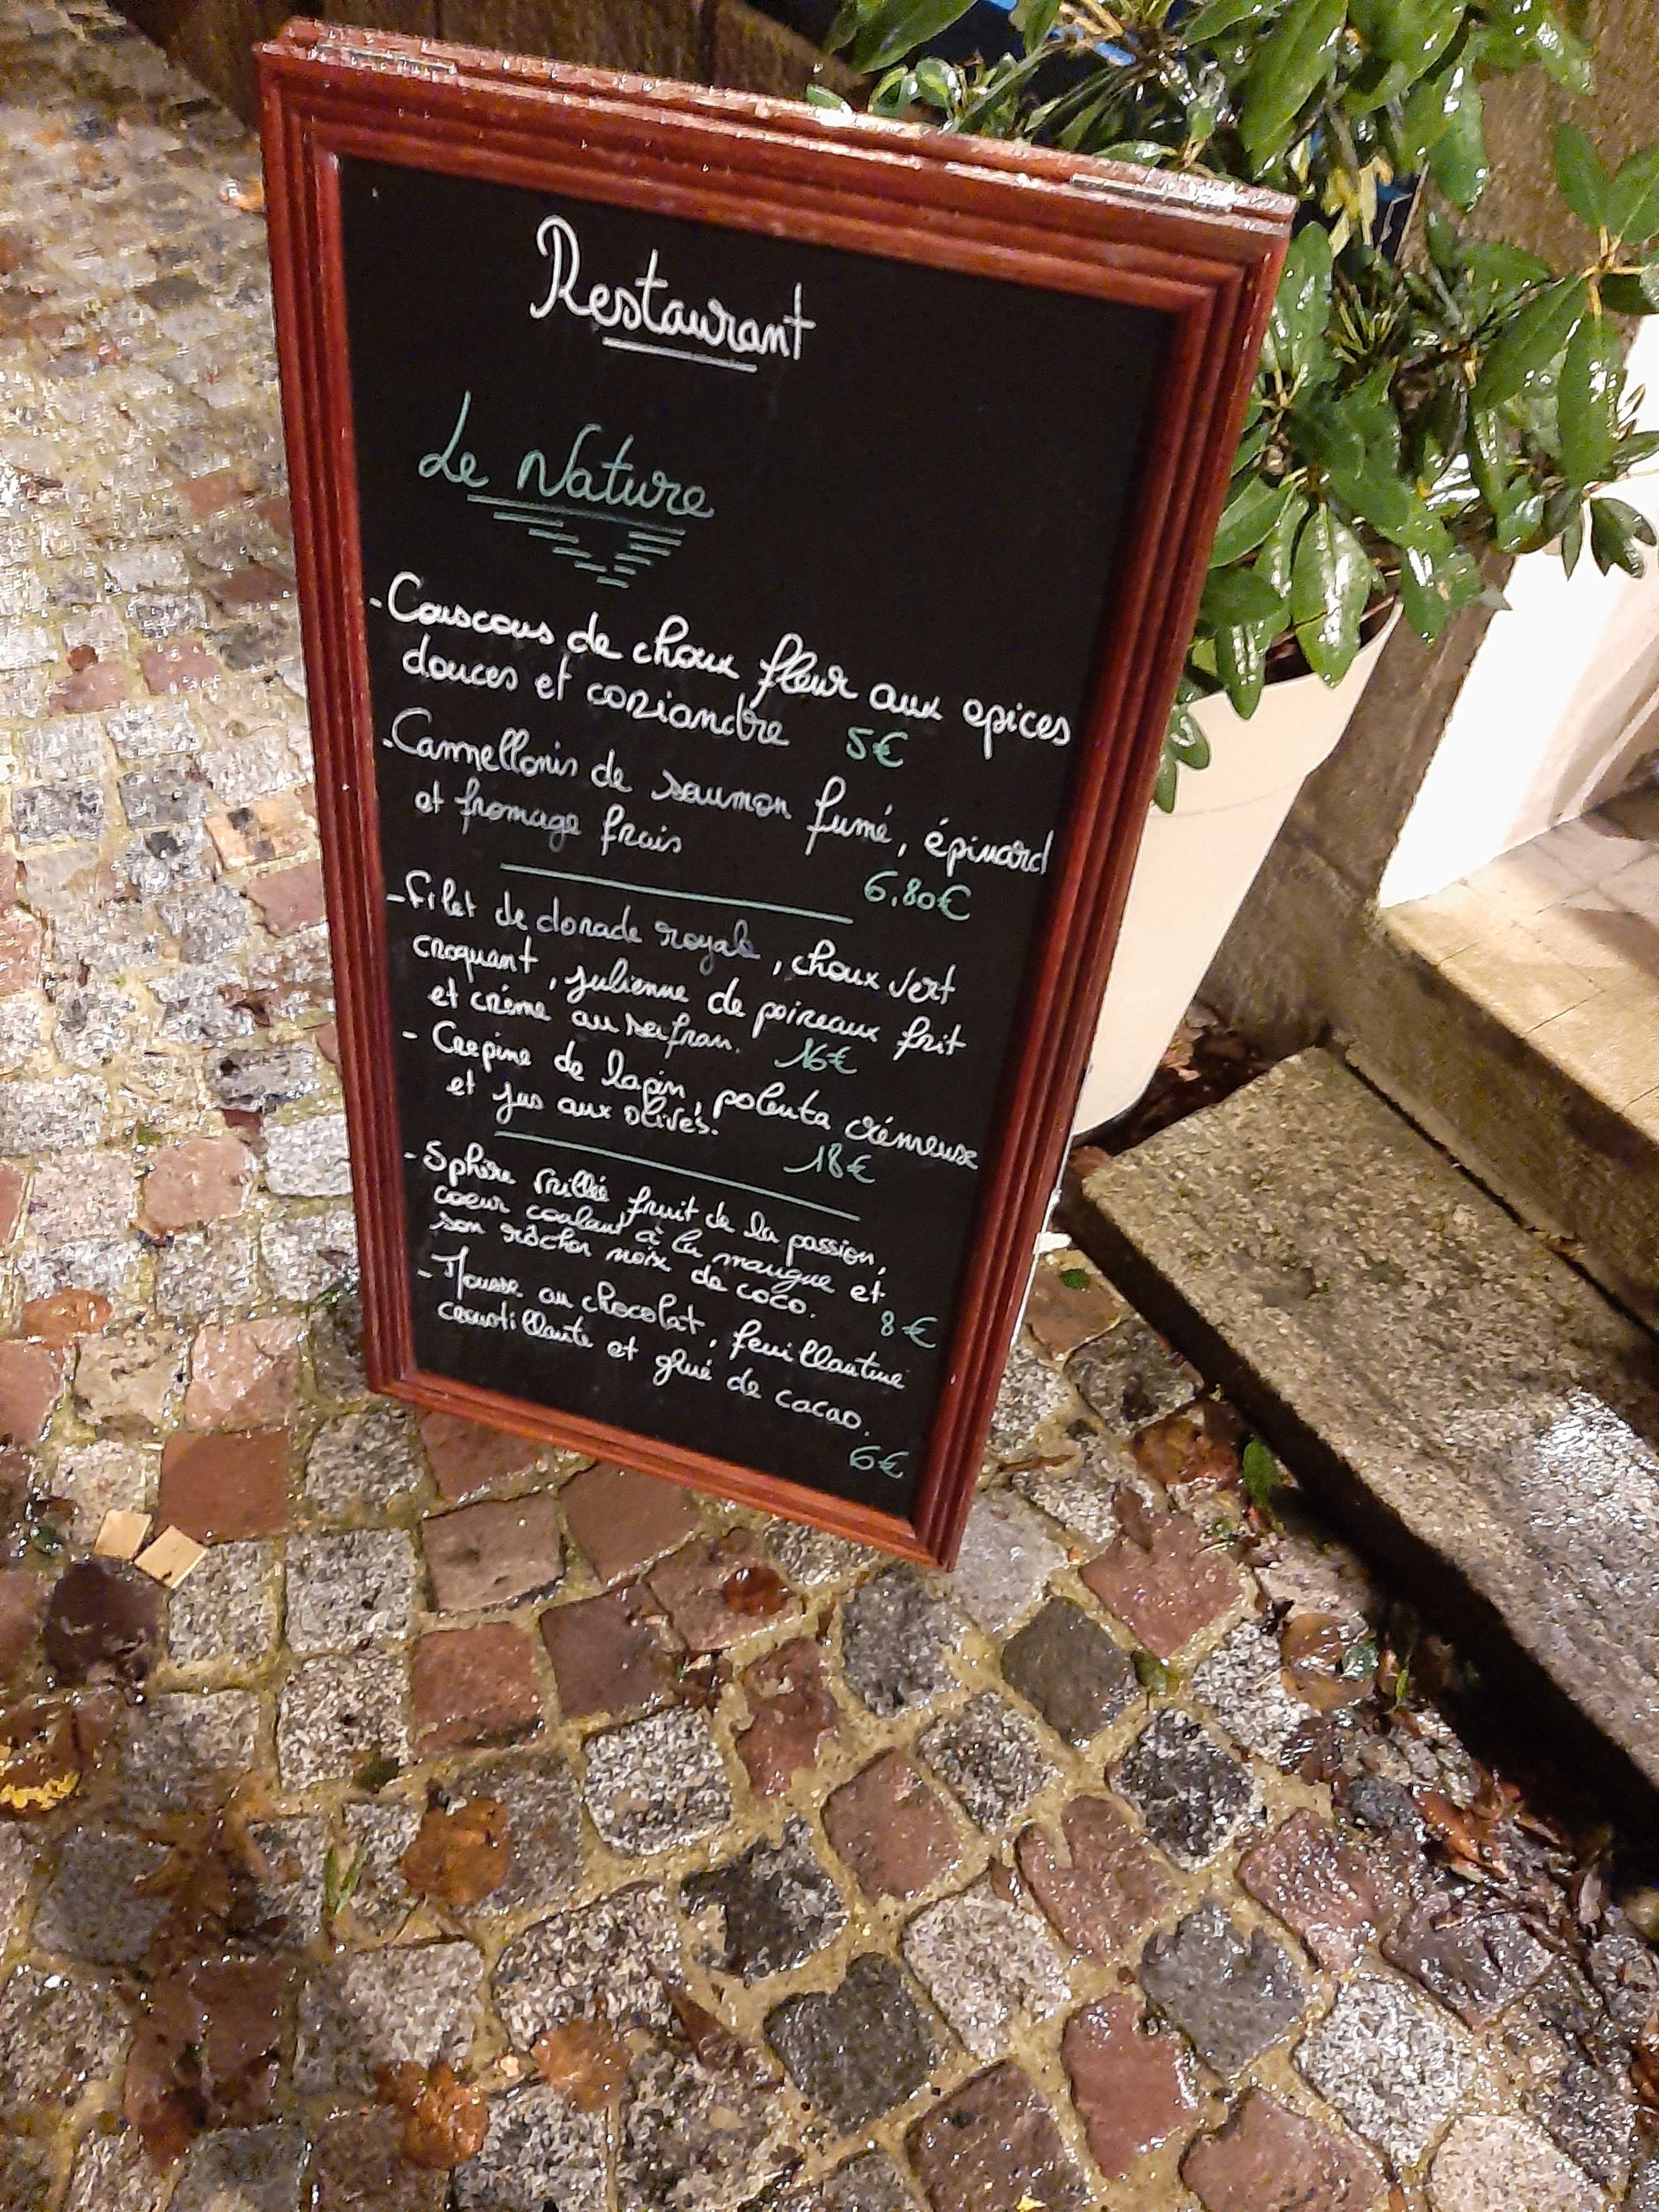 Restaurant
Le Nature
- Couscous de choux fleur aux epices
douces et coriandre 5€
- Cannellonis de saumon fumé, épinard
et fromage frais
6,80€
- Filet de dorade royale, choux vert
croquant, julienne de poireaux frit
et crème au safran. 16€
- Crepine de lapin, polenta crémeuse
et jus aux olives.
18€
- Sphère fruit de la passion,
coeur coulant à la mangue et
son rocher noix de coco.
8€
- Mousse au chocolat, feuillantine
croustillante et grué de cacao.
6€